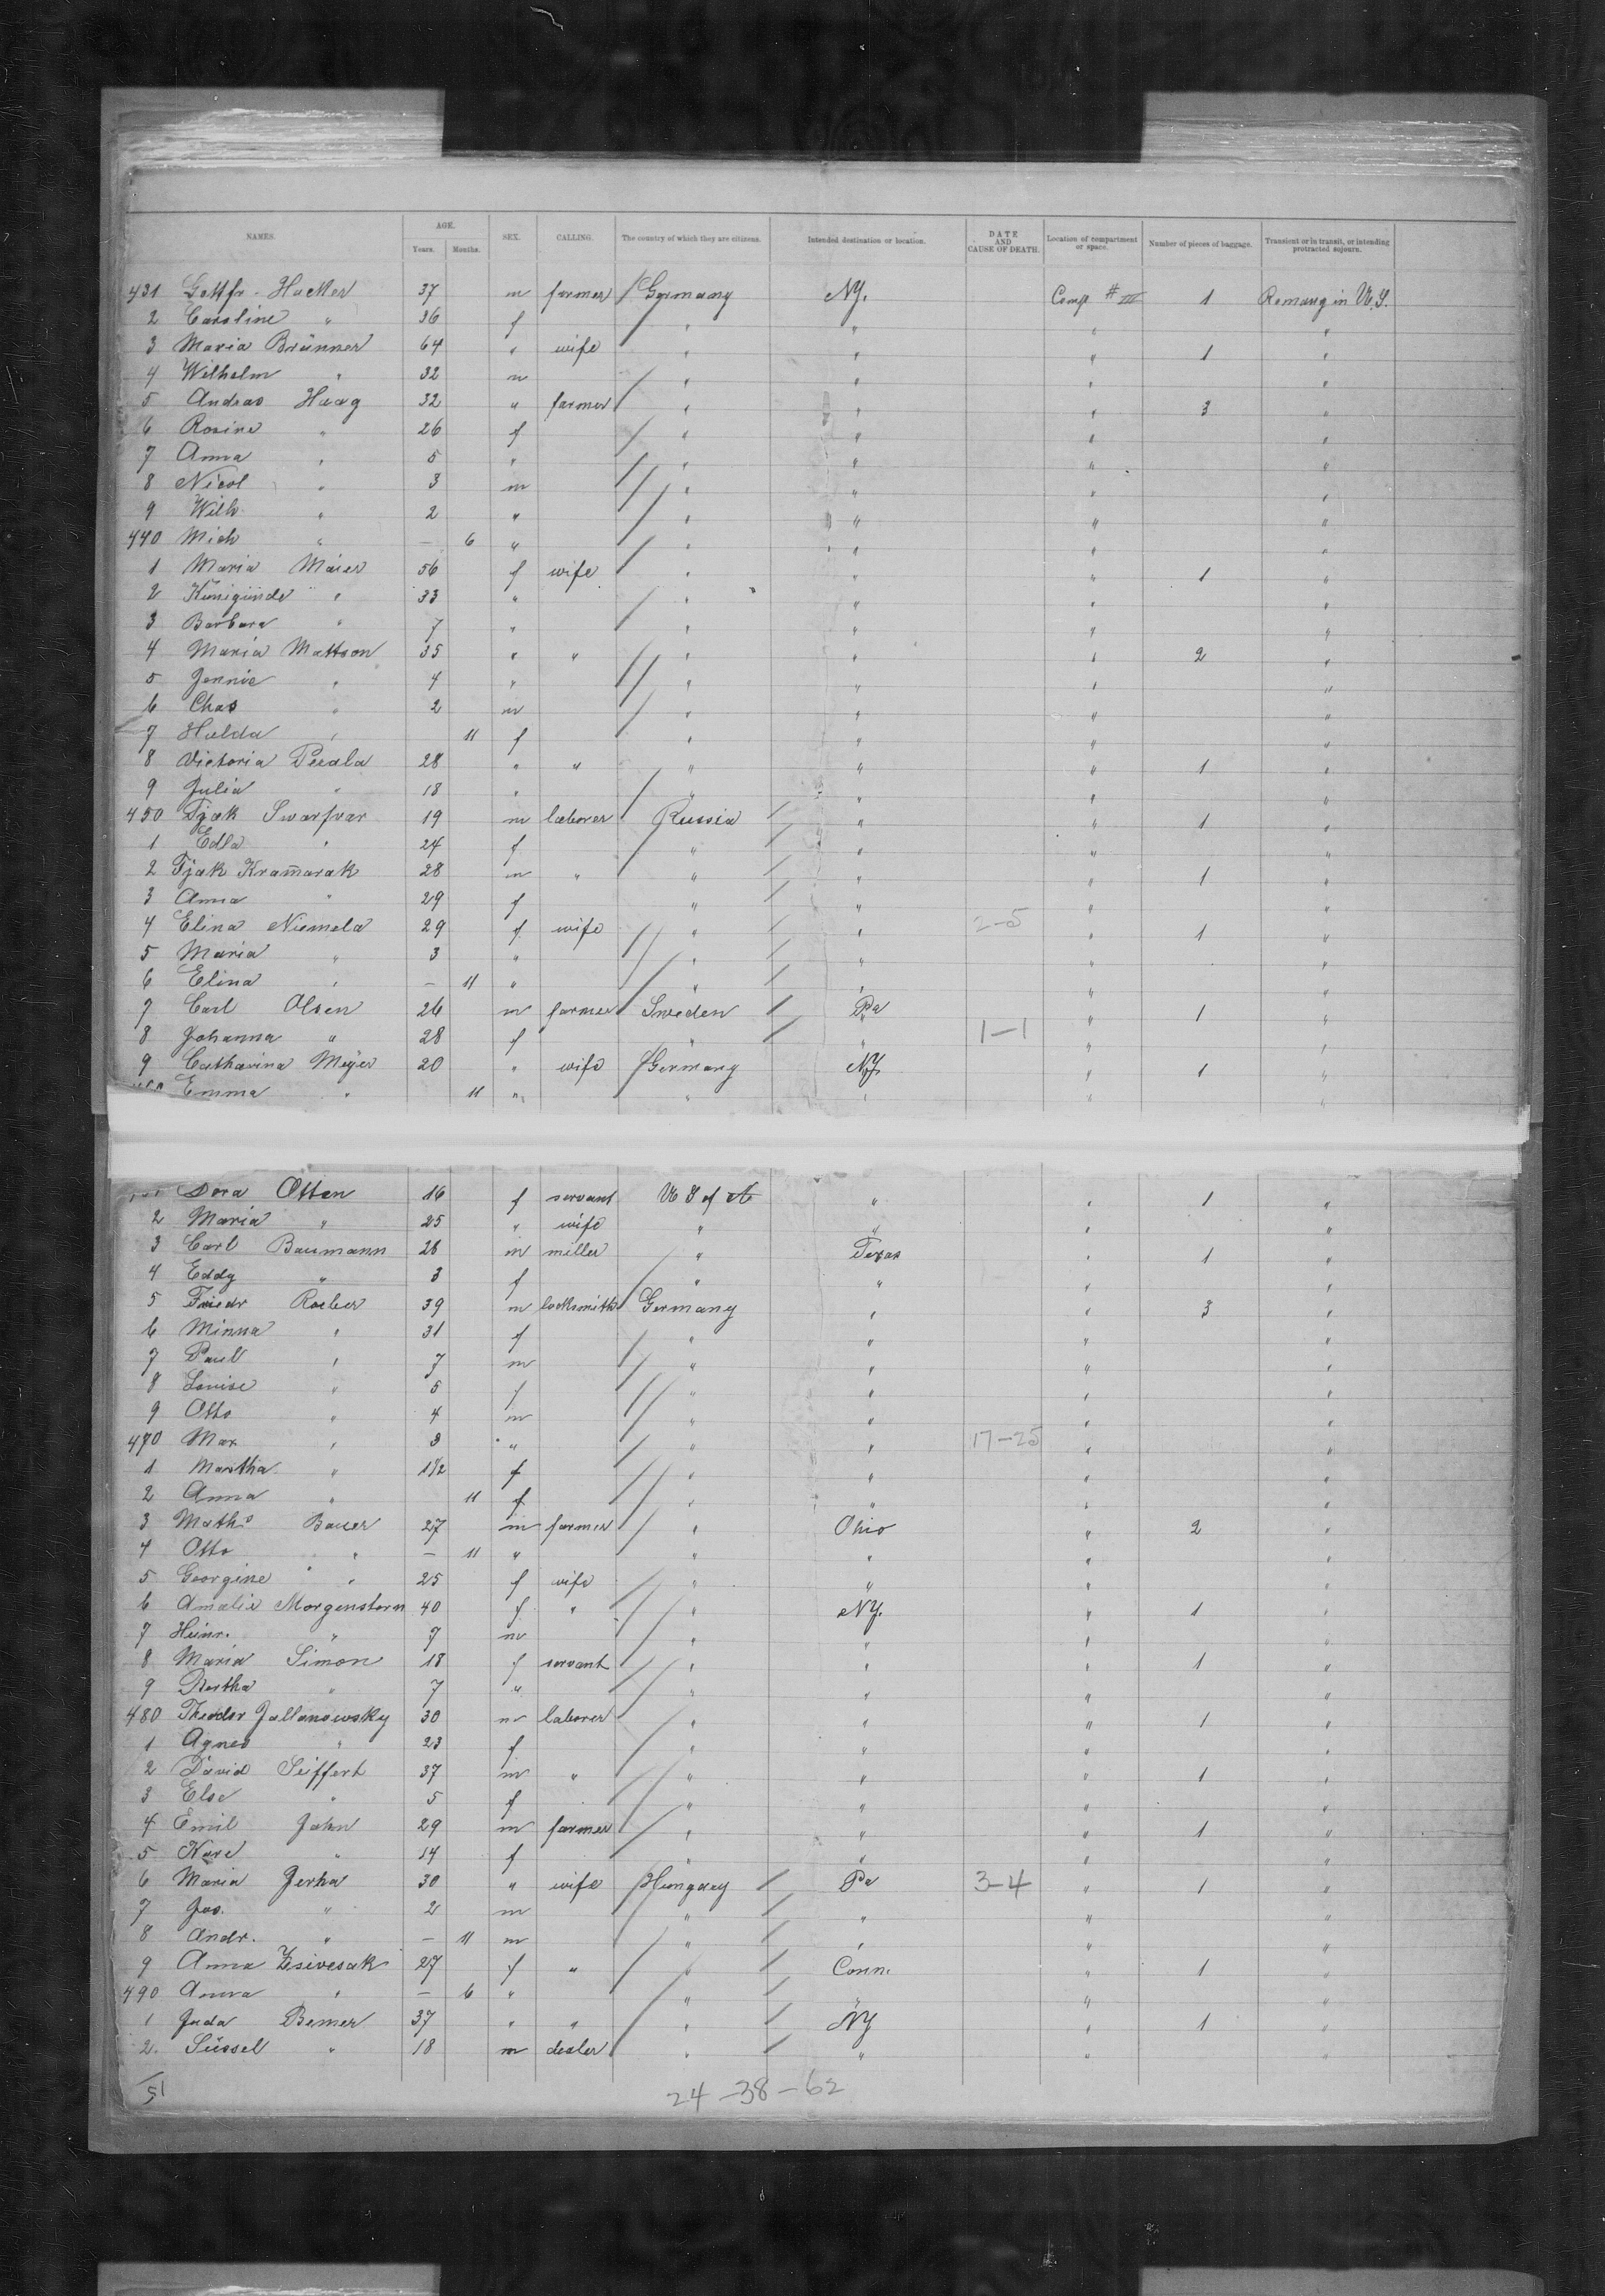 NAMES. AGE. Years. Months. SEX. CALLING. The country of which they are citizens. Intended destination or location. DATE AND CAUSE OF DEATH. Location of compartment or space. Number of pieces of baggage. Transient or in transit, or intending protracted sojourn.
431 Gottfr. Hacker 37 m farmer Germany N.Y. Comp # III 1 Remang in U.S.
2 Caroline " 36 f " " " "
3 Maria Brünner 64 " wife " " " 1 "
4 Wilhelm " 32 m " " " "
5 Andreas Haag 32 " farmer " " " 3 "
6 Rosine " 26 f " " " "
7 Anna " 5 " " " " "
8 Nicol " 3 m " " " "
9 Wilh. " 2 " " " " "
440 Mich " — 6 " " " " "
1 Maria Maier 56 f wife " " " 1 "
2 Kunigunde " 33 " " " " "
3 Barbara " 7 " " " " "
4 Maria Mattson 35 " " " " " 2 "
5 Jennie " 4 " " " " "
6 Chas " 2 m " " " "
7 Hulda " 11 f " " " "
8 Victoria Perala 28 " " " " " 1 "
9 Julia " 18 " " " " "
450 Swarfvar 19 m laborer Russia " " 1 "
1 Edla " 24 f " " " "
2 28 m " " " " 1 "
3 Anna " 29 f " " " "
4 Elina Niemela 29 f wife " " 2-5 " 1 "
5 Maria " 3 " " " " "
6 Elina " — 11 " " " " "
7 Carl Olsen 26 m farmer Sweden Pa " 1 "
8 Johanna " 28 f " " 1-1 " "
9 Catharina Meyer 20 " wife Germany N.Y. " 1 "
Emma " 11 " " " " "
Dora Otten 16 f servant U S of A " " 1 "
2 Maria " 25 " wife " " " "
3 Carl Baumann 28 m miller " Texas " 1 "
4 Eddy " 3 f " " " "
5 Friedr Roeber 39 m locksmith Germany " " 3 "
6 Minna " 31 f " " " "
7 Paul " 7 m " " " "
8 Louise " 5 f " " " "
9 Otto " 4 m " " " "
470 Max " 3 " " " 17-25 " "
1 Martha " 1 1/2 f " " " "
2 Anna " 11 f " " " "
3 Maths Bauer 27 m farmer " Ohio " 2 "
4 Otto " — 11 " " " " "
5 Georgine " 25 f wife " " " "
6 Amalie Morgenstern 40 f " " N.Y. " 1 "
7 Heinr. " 7 m " " " "
8 Maria Simon 18 f servant " " " 1 "
9 Bertha " 7 " " " " "
480 Theodor Jallonowsky 30 m laborer " " " 1 "
1 Agnes " 23 f " " " "
2 David Seiffert 37 m " " " " 1 "
3 Else " 5 f " " " "
4 Emil Jahn 29 m farmer " " " 1 "
5 " 14 f " " " "
6 Maria Jerha 30 " wife Hungary Pa 3-4 " 1 "
7 Jos. " 2 m " " " "
8 Andr. " — 11 m " " " "
9 Anna 27 f " " Conn. " 1 "
490 Anna " — 6 " " " " "
1 Juda Bemer 37 " " " N.Y. " 1 "
2. Süssel " 18 m dealer " " " "
51 24-38-62